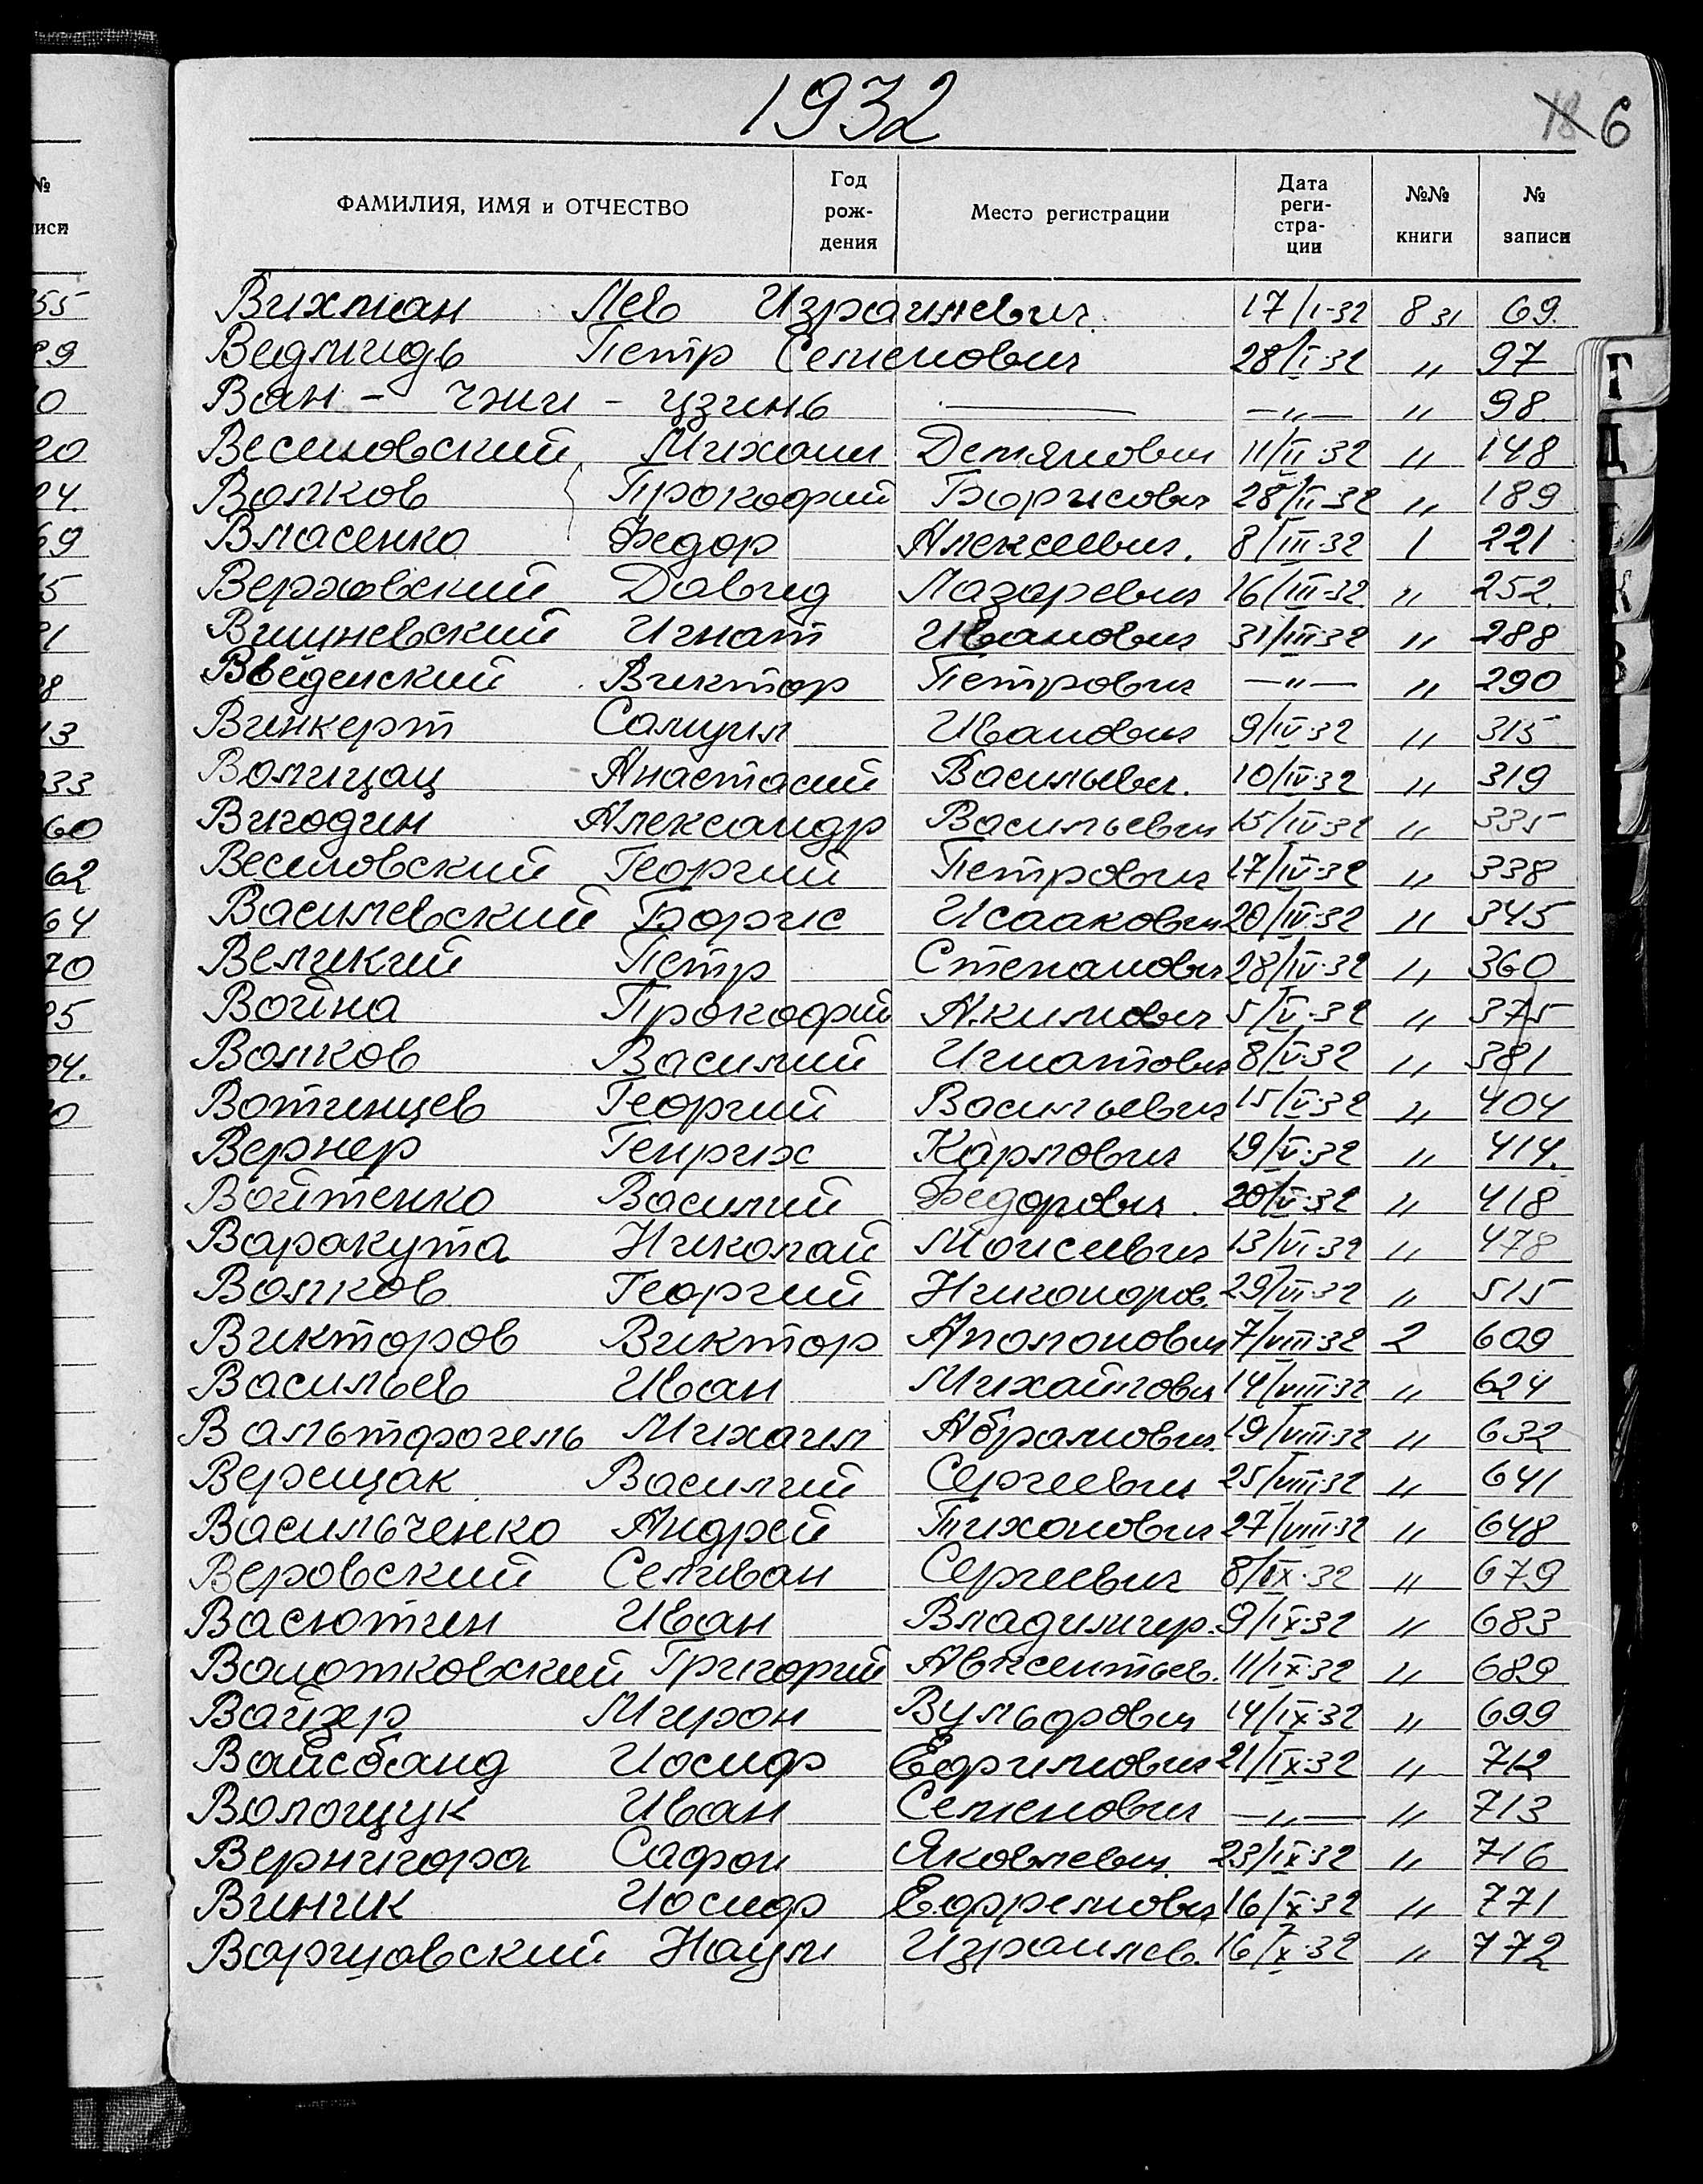 1932
18 6
№ иси
ФАМИЛИЯ, ИМЯ и ОТЧЕСТВО Год рож- дения Место регистрации Дата реги- стра- ции №№ книги № записи
Вихман Лев Израилевич. 17/I-32 8 31 69.
Ведмидь Петр Семенович 28/I-32 " 97
Ван - Чжи - цзинь —— —"— " 98.
Веселовский Михаил Демянович 11/II-32 " 148
Волков Прокофий Борисович 28/II-32 " 189
Власенко Федор Алексеевич. 8/III-32 1 221
Верховский Давид Лазаревич 16/III-32 " 252.
Вишневский Игнат Иванович 31/III-32 " 288
Введенский Виктор Петрович —"— " 290
Винкерт Самуил Иванович 9/IV-32 " 315
Анастасий Васильевич. 10/IV-32 " 319
Вигодин Александр Васильевич 15/IV-32 " 335
Веселовский Георгий Петрович 17/IV-32 " 338
Василевский Борис Исаакович 20/IV-32 " 345
Великий Петр Степанович 28/IV-32 " 360
Война Прокофий Акимович 5/V-32 " 375
Волков Василий Игнатович 8/V-32 " 381
Вотинцев Георгий Васильевич 15/V-32 " 404
Вернер Генрих Карлович 19/V-32 " 414.
Войтенко Василий Федорович. 20/V-32 " 418
Варакута Николай Моисеевич 13/VI-32 " 478
Волков Георгий Никоноров. 29/VI-32 " 515
Викторов Виктор Аполонович 7/VIII-32 2 609
Васильев Иван Михайлович 14/VIII-32 " 624
Вальтфогель Михаил Абрамович 19/VIII-32 " 632
Верещак Василий Сергеевич 25/VIII-32 " 641
Васильченко Андрей Тихонович 27/VIII-32 " 648
Веровский Селиван Сергеевич 8/IX-32 " 679
Васютин Иван Владимир. 9/IX-32 " 683
Волотковский Григорий Авксентьев. 11/IX-32 " 689
Вайзер Мирон Вульфович 14/IX-32 " 699
Вайсбанд Иосиф Ефимович 21/IX-32 " 712
Волощук Иван Семенович —"— " 713
Вернигора Сафон Яковлевич. 23/IX-32 " 716
Винник Иосиф Еффремович 16/X-32 " 771
Варшавский Наум Израилев. 16/X-32 " 772